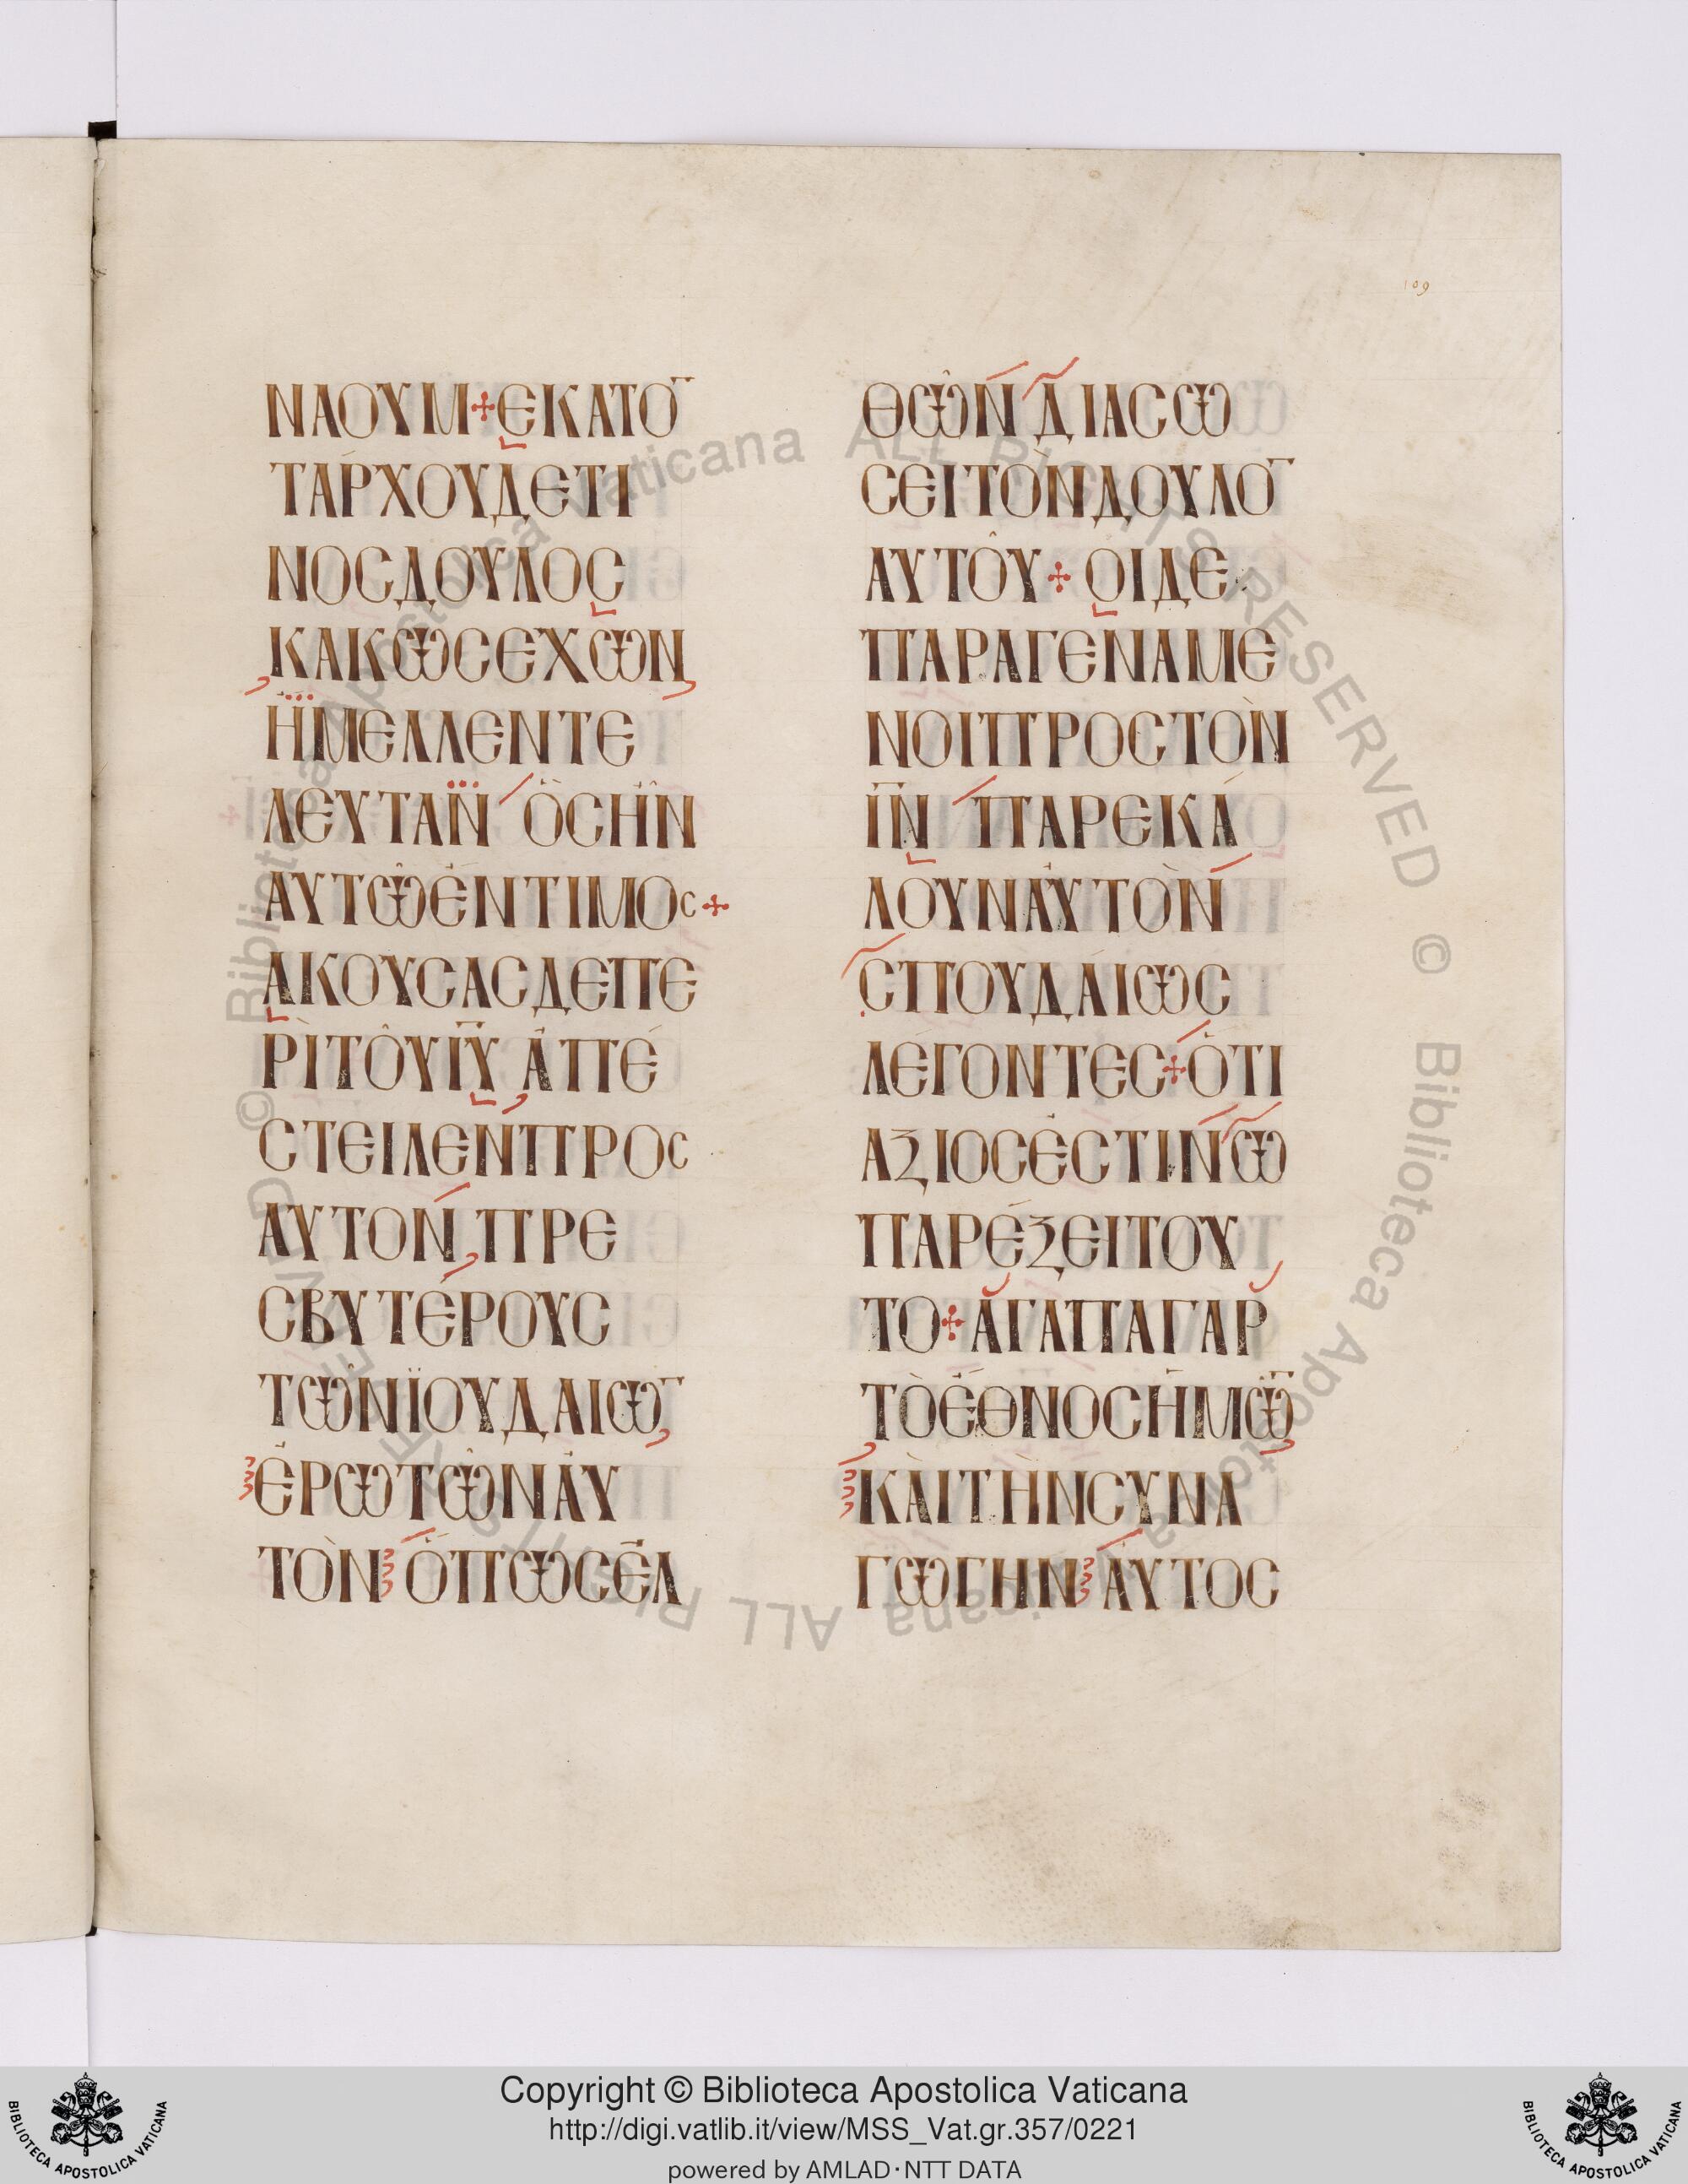 109
ΝΑΟΥΜ+ΕΚΑΤΟ¯
ΤΑΡΧΟΥΔΕΤΙ
ΝΟCΔΟΥΛΟC
ΚΑΚΩCΕΧΩΝ
ΗΜΕΛΛΕΝΤΕ
ΛΕΥΤΑΝ ὋCΗΝ
ΑΥΤΩΕΝΤΙΜΟC+
ΑΚΟΥCΑCΔΕΠΕ
ΡῚΤΟΥΙ̅Υ̅ ἈΠΕ
CΤΕΙΛΕΝΠΡΟC
ΑΥΤΟΝ ΠΡΕ
CΒΥΤΕΡΟΥC
ΤΩΝΪΟΥΔΑΙΩ¯
ἘΡΩΤΩΝΑΥ
ΤῸΝ ὍΠΩCΕΛ
ΘΩΝ ΔΙΑCΩ
CΕΙΤῸΝΔΟΥΛΟ¯
ΑΥΤΟΥ+ ΟΙΔΕ
ΠΑΡΑΓΕΝΑΜΕ
ΝΟΙΠΡΟCΤῸΝ
Ι̅Ν̅ ΠΑΡΕΚΆ
ΛΟΥΝΑΥΤῸΝ
CΠΟΥΔΆΙΩC
ΛΕΓΟΝΤΕC+ὍΤΙ
ΑΞΙΟCΕCΤΙΝΩ
ΠΑΡΈΞΕΙΤΟΥ
ΤΟ+ἈΓΑΠΑΓΑΡ
ΤῸΈΘΝΟCΗΜΩ¯
ΚΑῚΤῊΝCΥΝΑ
ΓΩΓΗΝ ΑΥΤΟC
© Biblioteca Apostolica Vaticana ALL RIGHTS RESERVED © Biblioteca Apostolica Vaticana ALL RIGHTS RESERVED
Copyright © Biblioteca Apostolica Vaticana
http://digi.vatlib.it/view/MSS_Vat.gr.357/0221
powered by AMLAD·NTT DATA
BIBLIOTECA APOSTOLICA VATICANA
BIBLIOTECA APOSTOLICA VATICANA